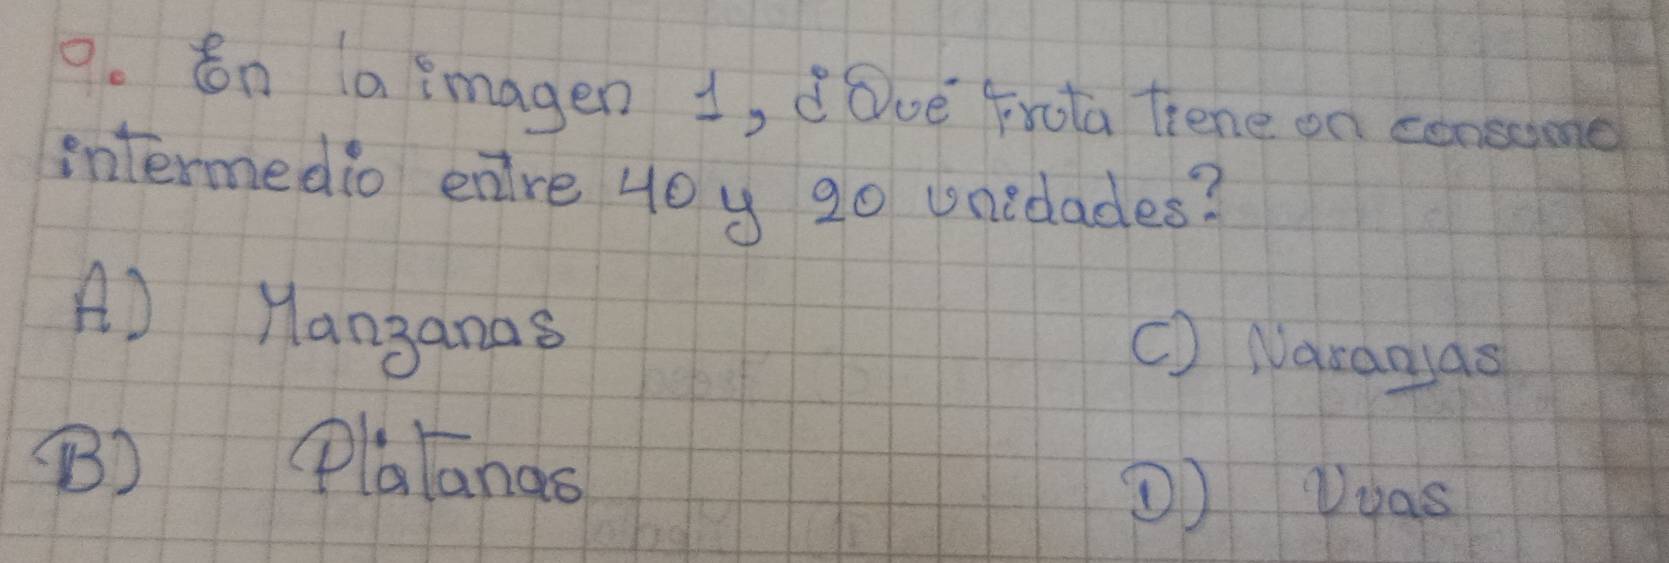 9. En la imagen 1, ¿Qué Fruta Tiene un consumo
intermedio entre 40 y 20 unidades?
A) Manzanas
C) Naranjas
B) Plátanas
D) Uvas